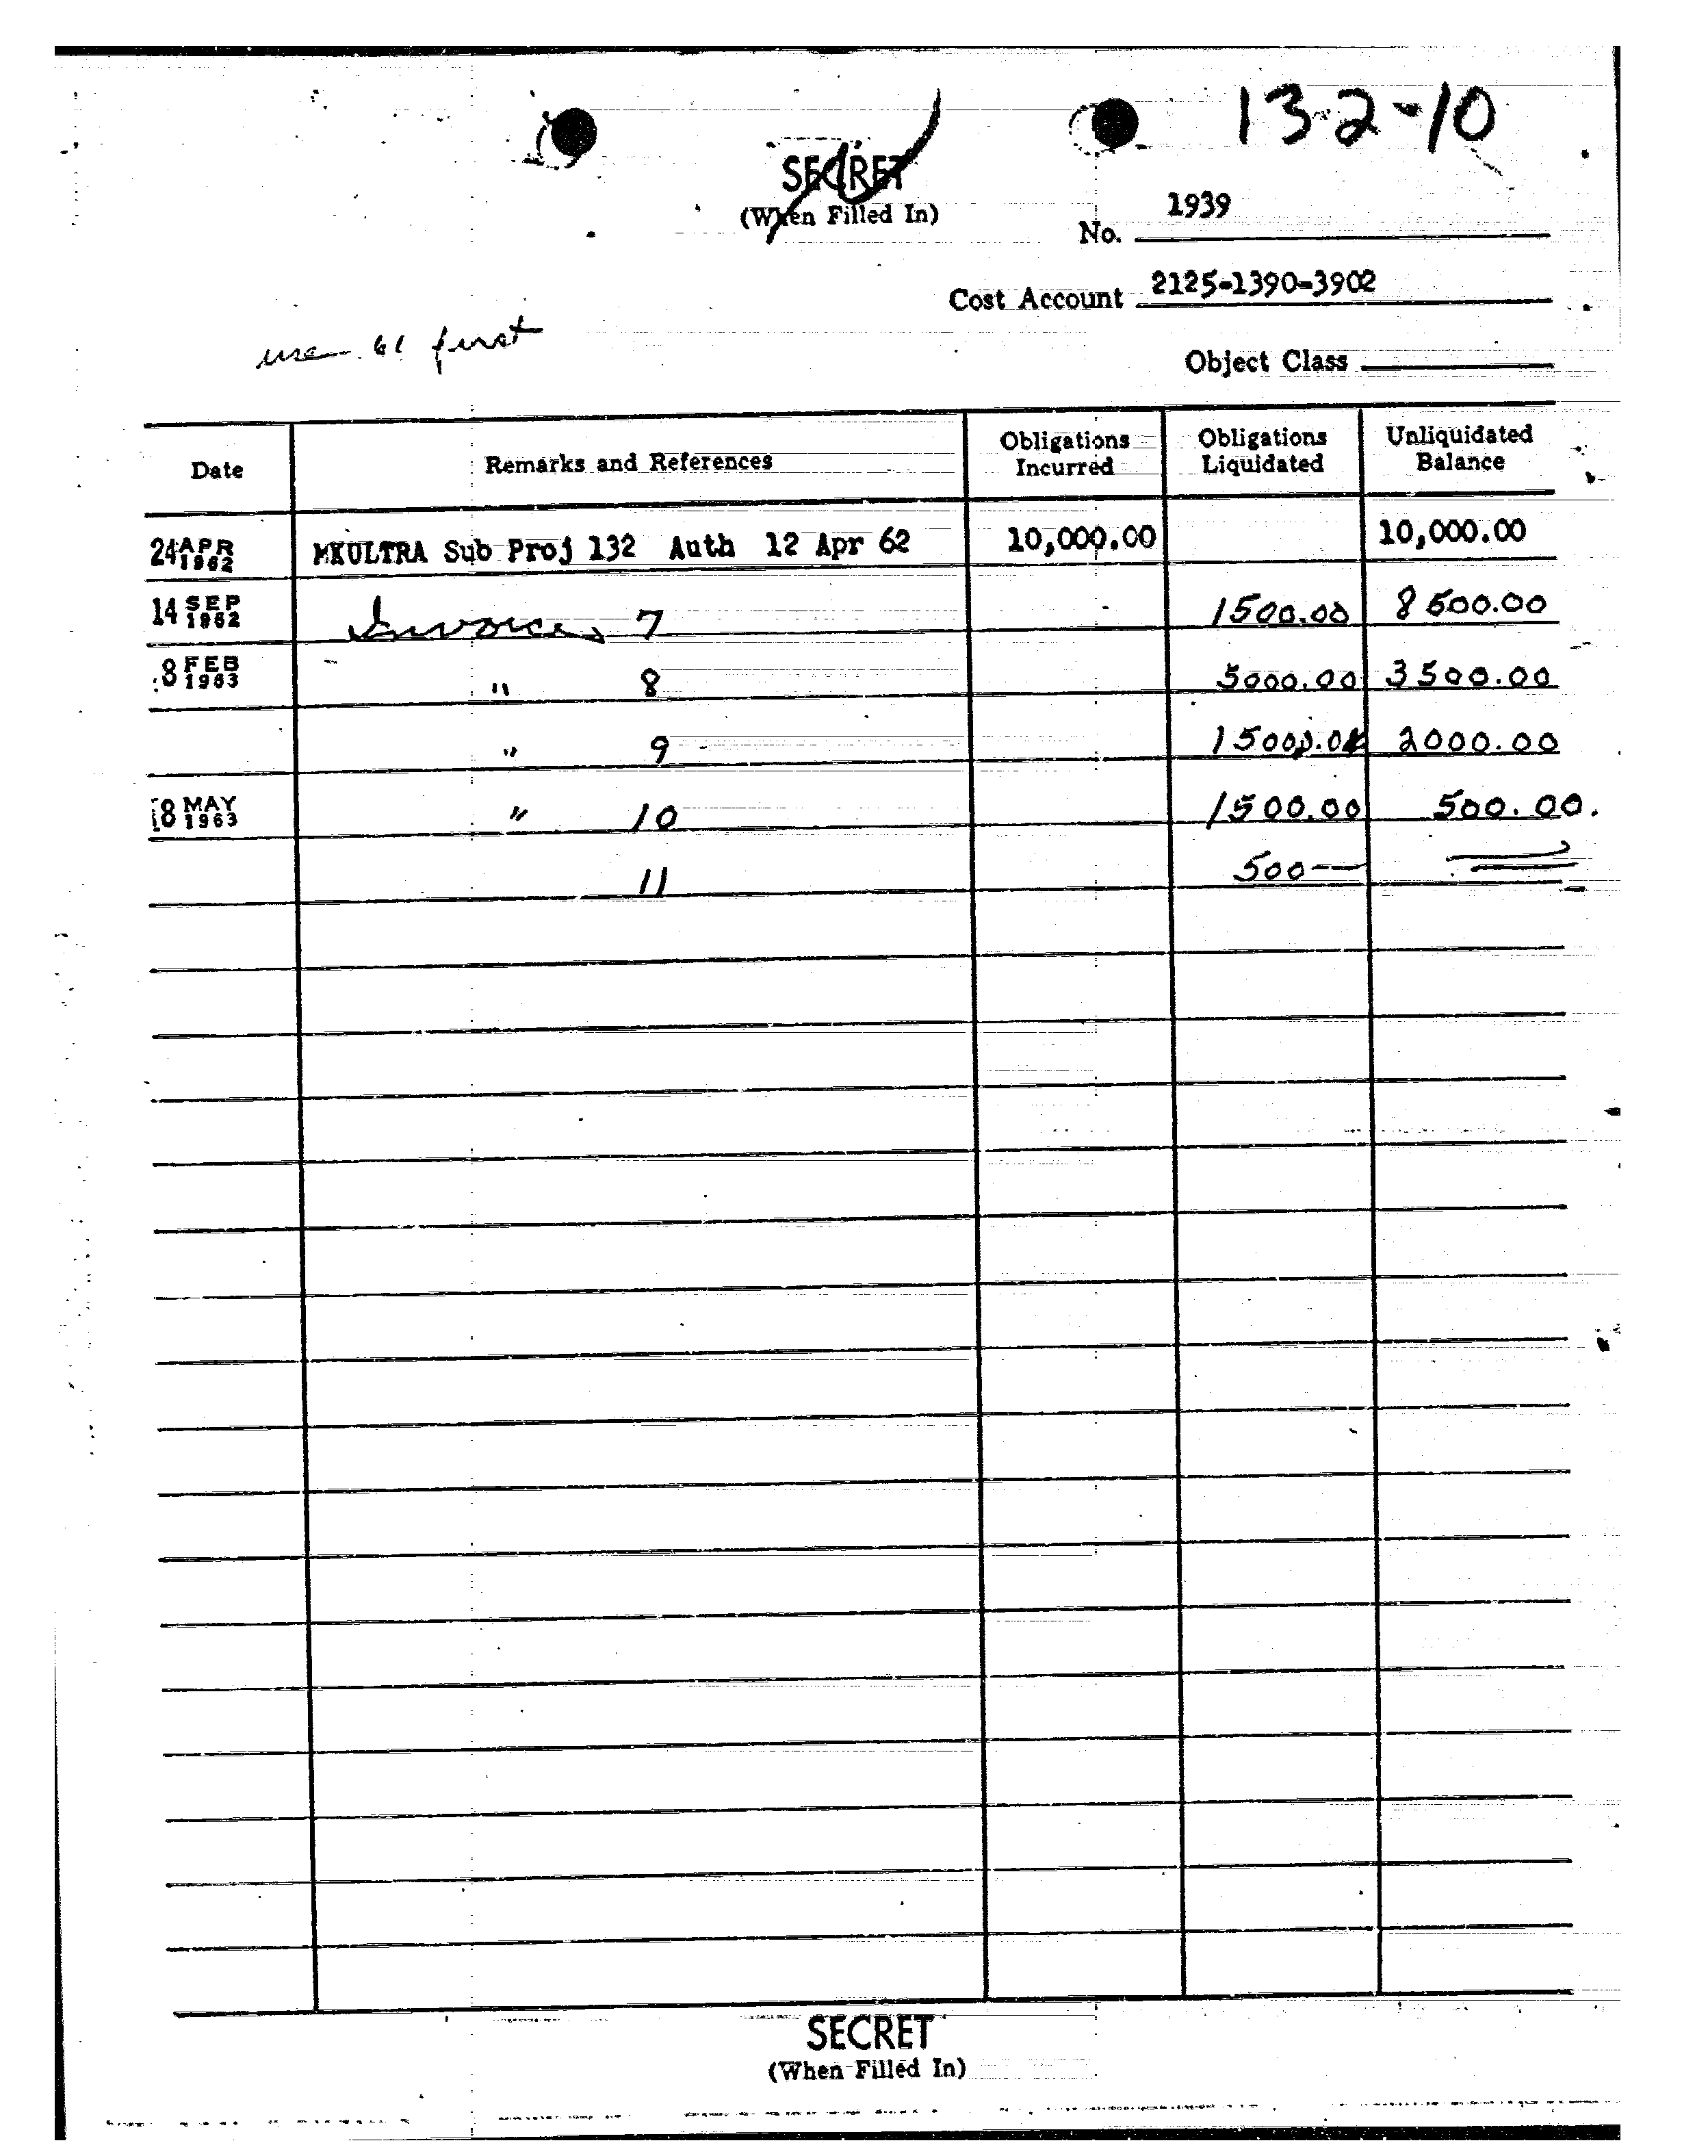 132-10
SECRET
(When Filled In)
No. 1939
Cost Account 2125-1390-3902
use 61 first
Object Class
Date Remarks and References Obligations Incurred Obligations Liquidated Unliquidated Balance
24 APR 1962 MKULTRA Sub Proj 132 Auth 12 Apr 62 10,000.00 10,000.00
14 SEP 1962 Invoices 7 1500.00 8500.00
8 FEB 1963 " 8 5000.00 3500.00
" 9 1500.00 2000.00
MAY 1963 " 10 1500.00 500.00.
11 500—
SECRET
(When Filled In)